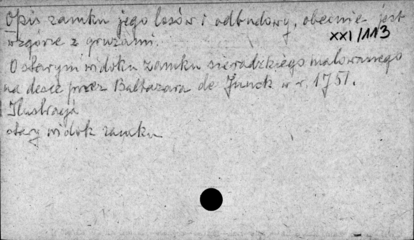 Opis zamku jego losów i odbudowy, obecnie jest
XXI/113
wzgórze z gruzami.
O starym widoku zamku sieradzkiego malowanego
na desce przez Baltazara de Junck w r. 1751.
Ilustracja
stary widok zamku